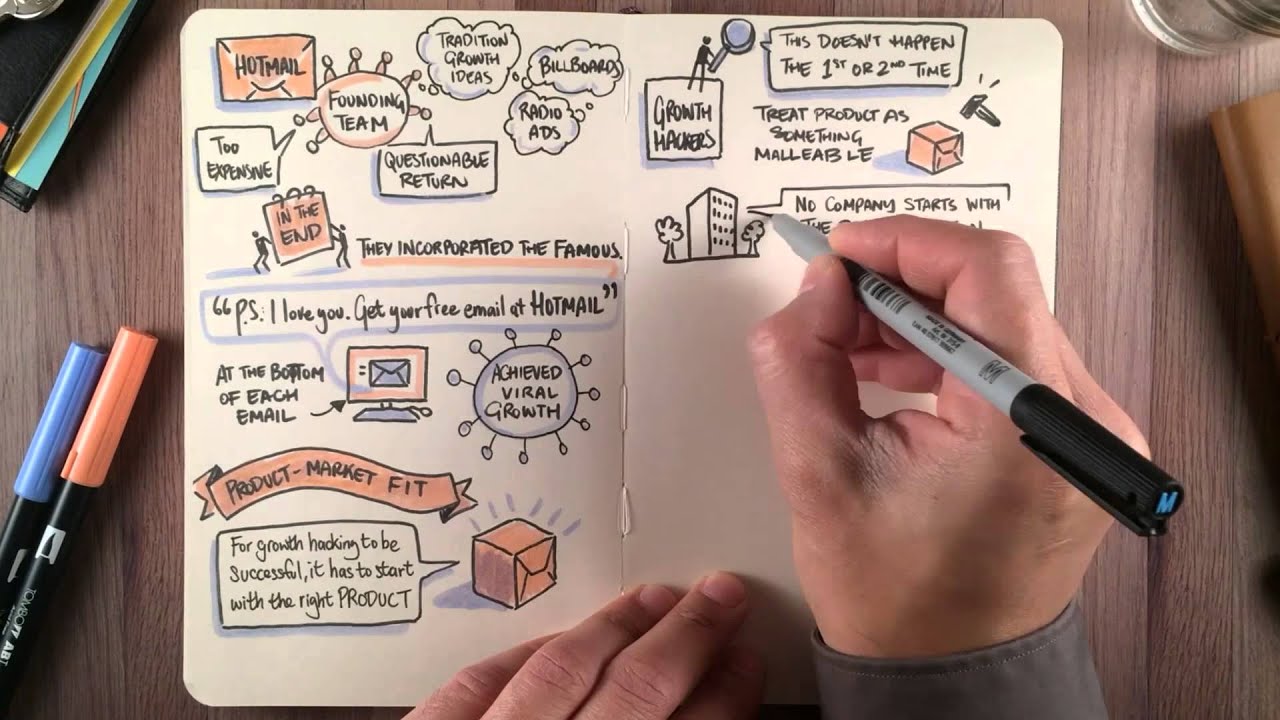 HOTMAIL
FOUNDING
TEAM
TRADITION
GROWTH
IDEAS
BILLBOARDS
RADIO
ADS
TOO
EXPENSIVE
QUESTIONABLE
RETURN
IN THE
END
THEY INCORPORATED THE FAMOUS.
"P.S.: I love you. Get your free email at HOTMAIL"
AT THE BOTTOM
OF EACH
EMAIL
ACHIEVED
VIRAL
GROWTH
PRODUCT-MARKET FIT
For growth hacking to be
successful, it has to start
with the right PRODUCT
GROWTH
HACKERS
THIS DOESN'T HAPPEN
THE 1ST OR 2ND TIME
TREAT PRODUCT AS
SOMETHING
MALLEABLE
NO COMPANY STARTS WITH
THE
M
TOMBOW ABT